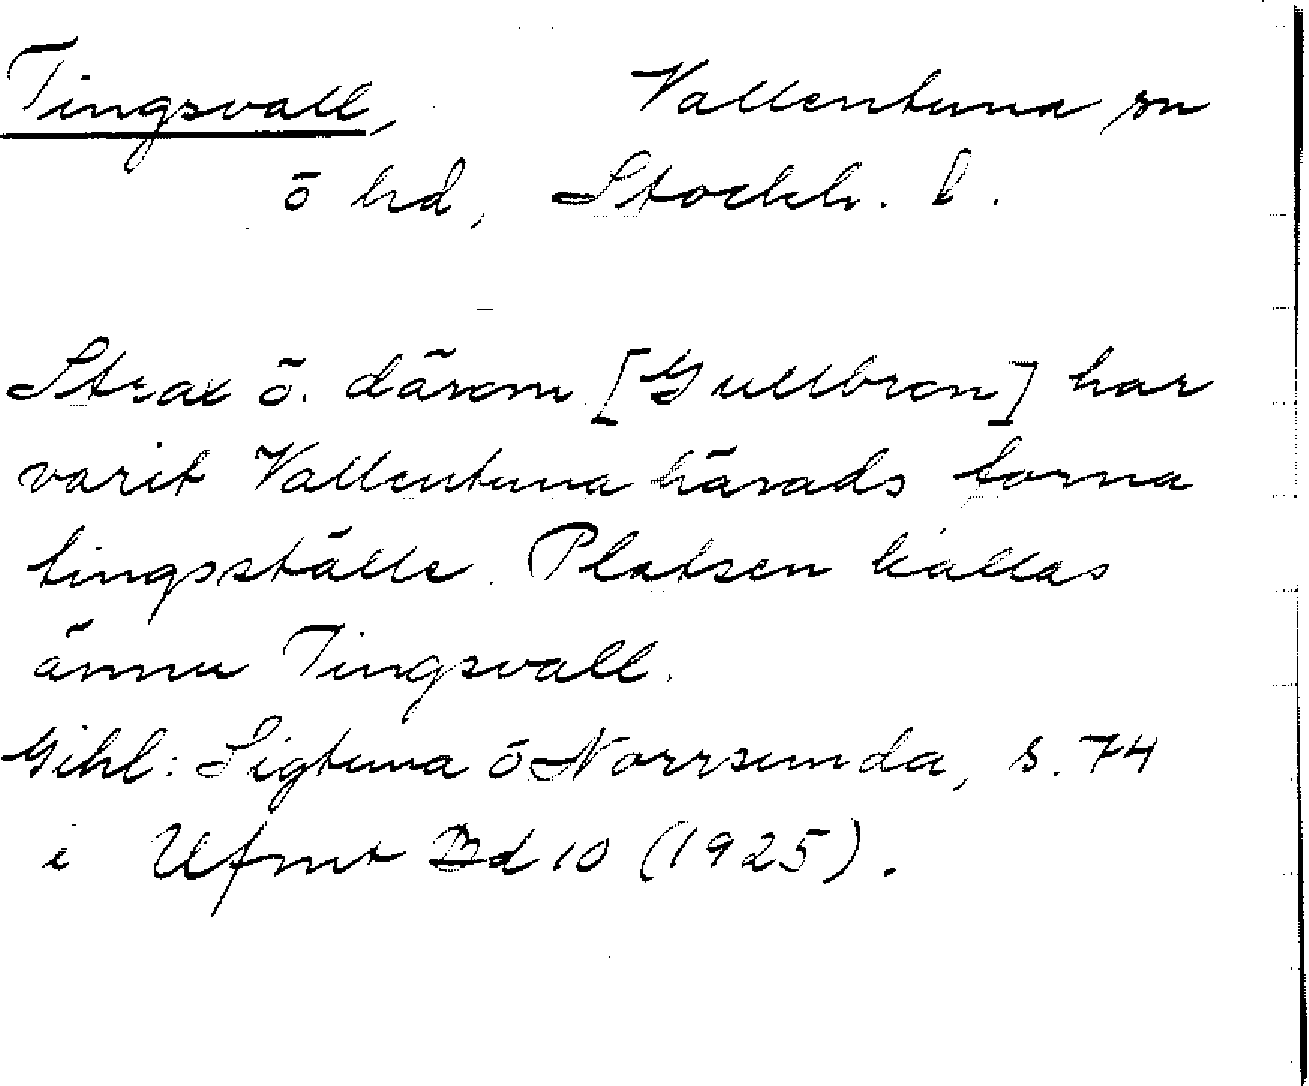 Tingsvall, Vallentuna sn
ō hd, Stockh. l.
Strax ö. därom [Gullbron] har
varit Vallentuna härads forna
tingsställe. Platsen kallas
ännu Tingsvall.
Gihl: Sigtuna ō Norrsunda, s. 74
i Ufmt Bd 10 (1925).